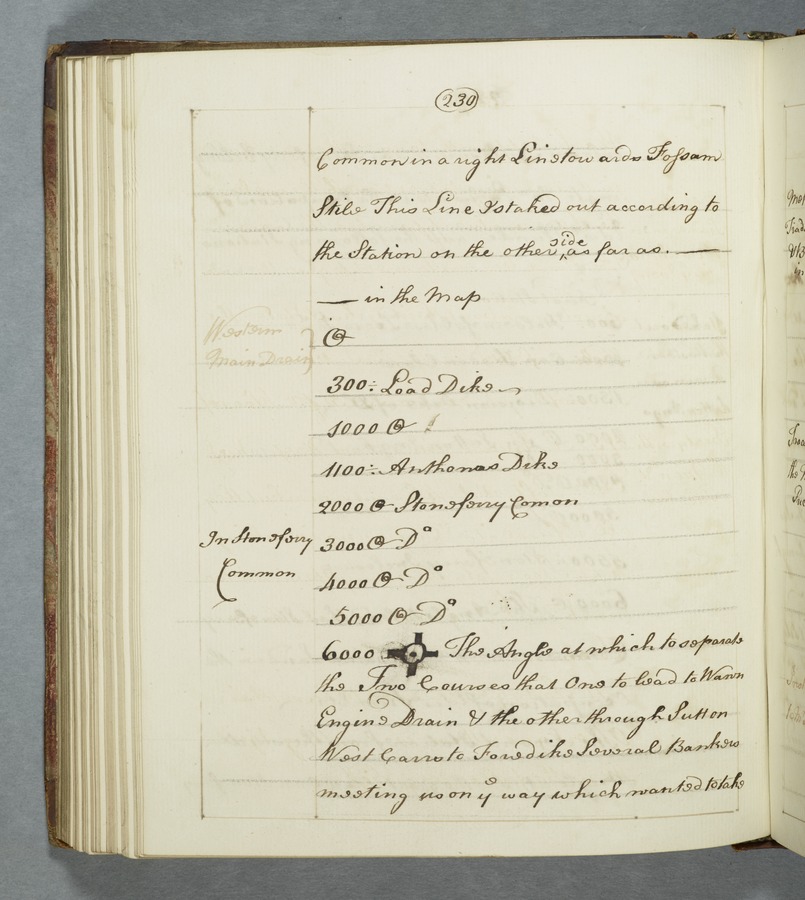 230
Common in a right Line towards Fossam
Stile This Line I staked out according to
the Station on the other side as far as. —
— in the Map
Western
Main Drain
300 : Load Dike
1000
1100 : Anthonas Dike
2000 Stoneferry Comon
In Stoneferry
Common
3000 Do
4000 Do
5000 Do
6000 The Angle at which to separate
the Two Courses that One to lead to Wawn
Engine Drain & the other through Sutton
West Carr to Foredike Several Bankers
meeting us on ye way which wanted to take